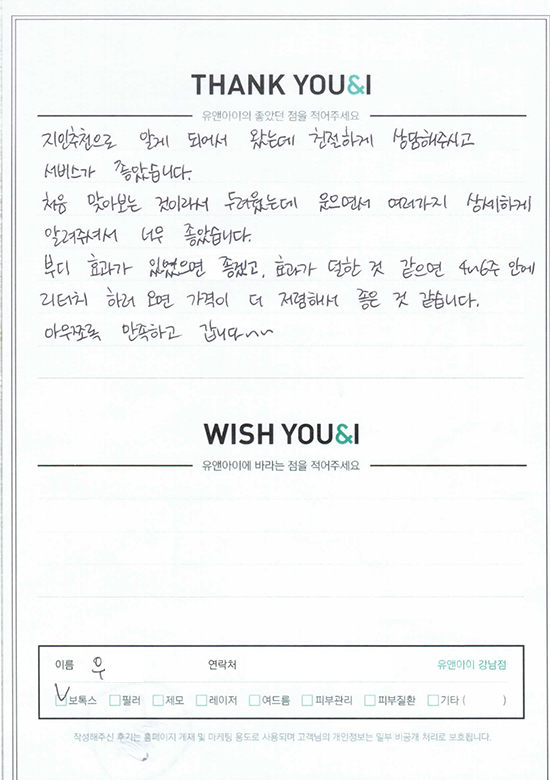 THANK YOU&I
유앤아이의 좋았던 점을 적어주세요
지인추천으로 알게 되어서 왔는데 친절하게 상담해주시고
서비스가 좋았습니다.
처음 맞아보는 것이라서 두려웠는데 웃으면서 여러가지 상세하게
알려주셔서 너무 좋았습니다.
부디 효과가 있었으면 좋겠고, 효과가 덜한 것 같으면 4~6주 안에
리터치 하러 오면 가격이 더 저렴해서 좋은 것 같습니다.
아무쪼록 만족하고 갑니다~~
WISH YOU&I
유앤아이에 바라는 점을 적어주세요
이름 우 연락처 유앤아이 강남점
보톡스 필러 제모 레이저 여드름 피부관리 피부질환 기타 ( )
작성해주신 후기는 홈페이지 게재 및 마케팅 용도로 사용되며 고객님의 개인정보는 일부 비공개 처리로 보호됩니다.